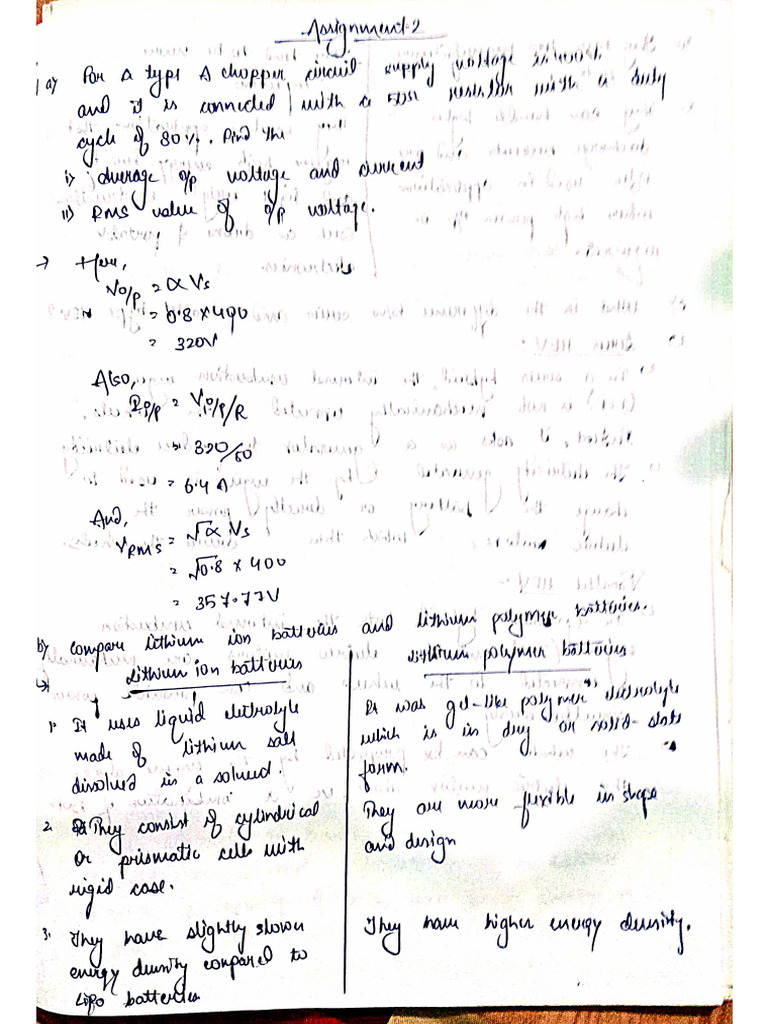 Assignment-2
1 a) For a type A chopper circuit supply voltage is 400V
and it is connected with a 50Ω resistor with a duty
cycle of 80%. Find the
i) average o/p voltage and current
ii) RMS value of o/p voltage.
→ Here,
Vo/p = α Vs
= 0.8 × 400
= 320V
Also,
Io/p = Vo/p/R
= 320/50
= 6.4 A
And,
VRMS = √α Vs
= √0.8 × 400
= 357.77V
b) compare lithium ion batteries and lithium polymer batteries.
→ Lithium ion batteries
1. It uses liquid electrolyte
made of lithium salt
dissolved in a solvend.
2. They consist of cylindrical
or prismatic cells with
rigid case.
3. They have slightly slower
energy density compared to
Lipo batteries
Lithium polymer batteries
It was gel-like polymer electrolyte
which is in dry or solid-state
form.
They are more flexible in shape
and design
They have higher energy density.